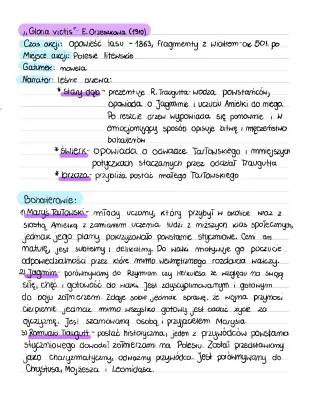 „Gloria victis" E. Orzeszkowa (1910)
Czas akcji: opowieść lasu - 1863, fragmenty z wiatrem - ok 50l. po
Miejsce akcji: Polesie litewskie
Gatunek: nowela
Narrator: leśne drzewa:
* Stary dąb - prezentuje R. Traugutta - wodza powstańców,
opowiada o Jagminie i uczuciu Anielki do niego.
Po reszcie drzew wypowiada się ponownie i w
emocjonujący sposób opisuje bitwę i męczeństwo
bohaterów
* Świerk - opowiada o odwadze Tarłowskiego i mniejszych
potyczkach staczanych przez oddział Traugutta
* brzoza - przybliża postać małego Tarłowskiego
Bohaterowie:
1) Maryś Tarłowski - młody uczony, który przybył w okolice wraz z
siostrą Anielką z zamiarem uczenia ludzi z niższych klas społecznych,
jednak jego plany pokrzyżowało powstanie styczniowe. Ceni on
naturę, jest wątłemu i delikatny. Do walki motywuje go poczucie
odpowiedzialności przez które mimo wewnętrznego rozdarcia walczy.
2) Jagmin - porównywany do Rzymian czy Herkulesa ze względu na swoją
siłę, chęć i gotowość do walki. Jest zdyscyplinowanym i gotowym
do boju żołnierzem. Zdaje sobie jednak sprawę, że wojna przynosi
cierpienie jednak mimo wszystko gotowy jest oddać życie za
ojczyznę. Jest szanowaną osobą i przyjacielem Marysia.
3) Romuald Traugutt - postać historyczna, jeden z przywódców powstania
styczniowego dowodził żołnierzami na Polesiu. Został przedstawiony
jako charyzmatyczny, odważny przywódca. Jest porównywany do
Chrystusa, Mojżesza i Leonidasa.